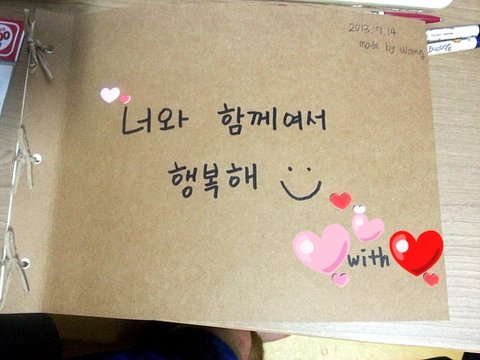 2013.7.14
made by Woong
너와 함께여서
행복해
with